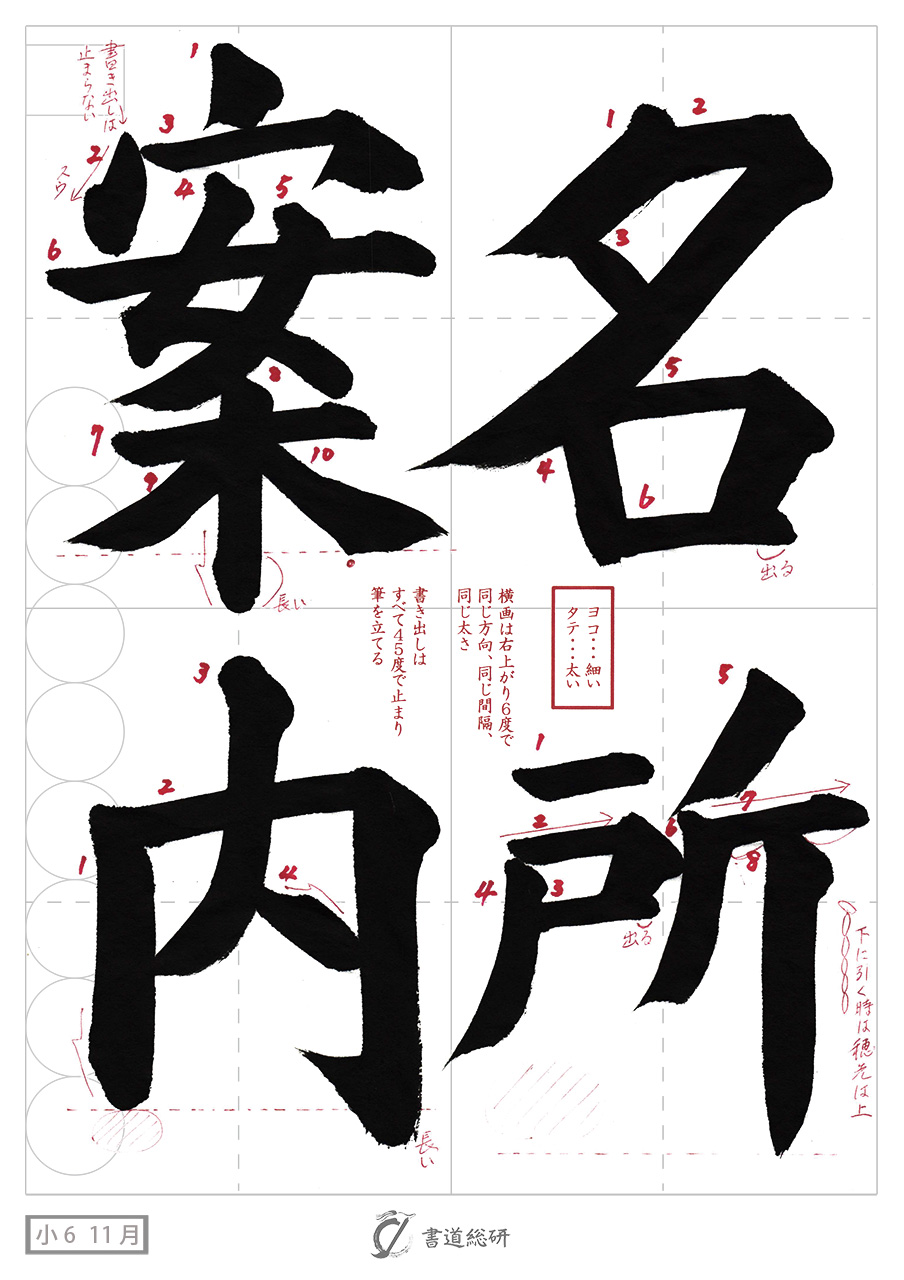 名所
案内
ヨコ・・・細い
タテ・・・太い
横画は右上がり6度で
同じ方向、同じ間隔、
同じ太さ
書き出しは
すべて45度で止まり
筆を立てる
1
2
3
4
5
6
出る
1
2
3
4
5
6
7
8
出る
下に引く時は穂先は上
書き出しは
止まらない
スウ
1
2
3
4
5
6
7
8
9
10
長い
1
2
3
4
長い
小6 11月
書道総研